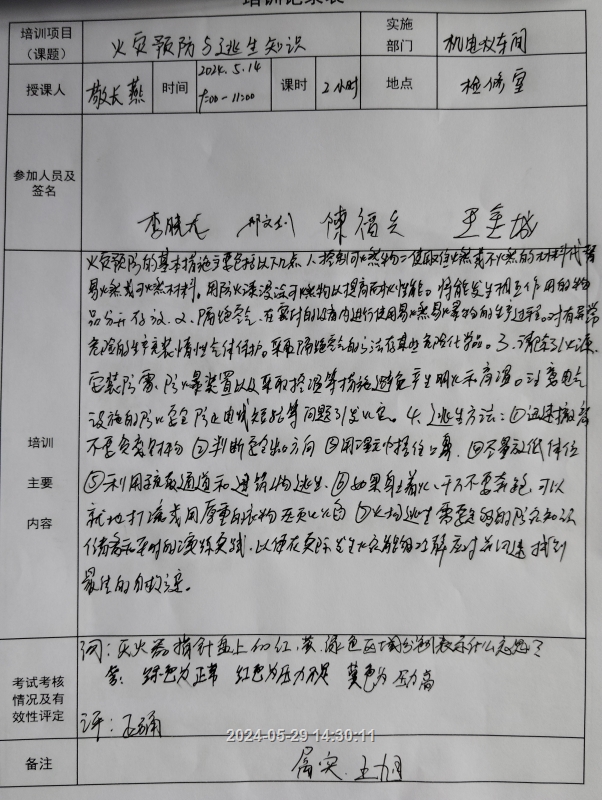 培训记录表
培训项目（课题） 火灾预防与逃生知识 实施部门 机电仪车间
授课人 敬长燕 时间 2024.5.14 9:00-11:00 课时 2小时 地点 检修室
参加人员及签名
李晓龙 陳福 王金城
火灾预防的基本措施主要包括以下几点 1、控制可燃物：使用难燃或不燃的材料代替
易燃或可燃材料。用防火漆浸涂可燃物以提高耐火性能。将能发生相互作用的物
品分开存放。2、隔绝空气、在密封的设备内进行使用易燃易爆物的生产过程。对有异常
危险的生产充装惰性气体保护。采取隔绝空气的方法存某些危险化学品。3、消除引火源
安装防雷、防爆装置以及采取控温等措施避免产生明火和高温。注意电气
设施的防火安全防止电线短路等问题引发火灾。4、逃生方法：①迅速撤离
不要贪恋财物 ②判断安全出口方向 ③用湿毛巾捂住口鼻 ④尽量放低体位
⑤利用疏散通道和建筑物逃生 ⑥如果身上着火、千万不要奔跑，可以
就地打滚或用厚重的衣物压灭火苗 ⑦火场逃生需要足够的防灾知识
储备和平时的演练实践，以便在实际发生火灾能够冷静应对并迅速找到
最佳的自救方法。
培训主要内容
问：灭火器指针盘上的红、黄、绿色区域分别表示什么意思？
答：绿色为正常 红色为压力不足 黄色为压力高
考试考核情况及有效性评定
评：正确
2024-05-29 14:30:11
备注 属实.